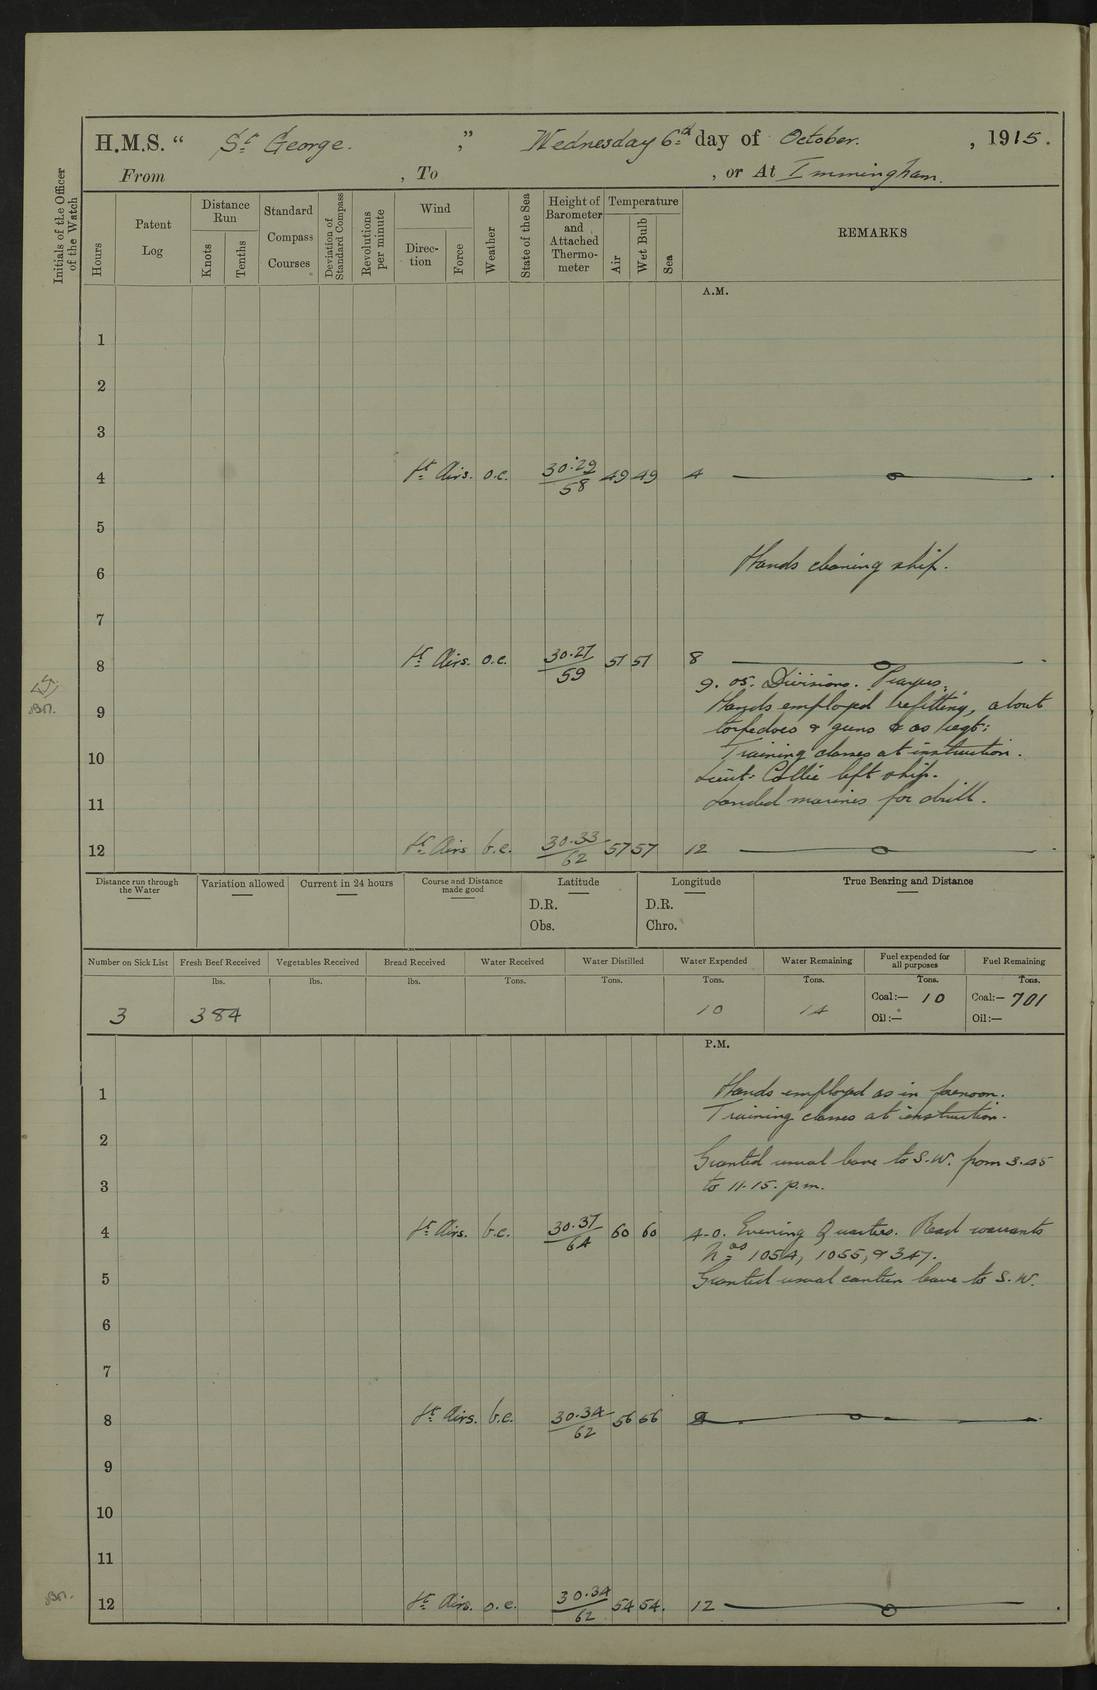 H.M.S. “ St. George. ,” Wednesday 6th day of October. , 1915.
From , To , or At Immingham.
Initials of the Officer of the Watch
Hours
Patent Log
Distance Run
Knots
Tenths
Standard Compass Courses
Deviation of Standard Compass
Revolutions per minute
Wind
Direc-tion
Force
Weather
State of the Sea
Height of Barometer and Attached Thermo-meter
Temperature
Air
Wet Bulb
Sea
REMARKS
A.M.
1
2
3
4 Lt. Airs. o.c. 30.29/58 49 49 4
5
Hands cleaning ship.
6
7
8 Lt. Airs. o.c. 30.27/59 51 51 8
9.05. Divisions. Prayers.
9 Hands employed refitting, about
torpedoes & guns & as reqt:
10 Training classes at instruction.
Lieut: Collie left ship.
11 Landed marines for drill.
12 Lt. Airs b.c. 30.33/62 57 57 12
Distance run through the Water
Variation allowed
Current in 24 hours
Course and Distance made good
Latitude
D.R.
Obs.
Longitude
D.R.
Chro.
True Bearing and Distance
Number on Sick List
Fresh Beef Received
Vegetables Received
Bread Received
Water Received
Water Distilled
Water Expended
Water Remaining
Fuel expended for all purposes
Fuel Remaining
lbs. lbs. lbs. Tons. Tons. Tons. Tons. Tons. Tons.
3 384 10 14
Coal:— 10 Coal:— 701
Oil:— Oil:—
P.M.
1 Hands employed as in forenoon.
Training classes at instruction.
2
Granted usual leave to S.W. from 3.45
3 to 11.15. p.m.
4 Lt. Airs. b.c. 30.37/64 60 60 4-0. Evening Quarters. Read warrants
Nos 1054, 1055, & 347.
5 Granted usual canteen leave to S.W.
6
7
8 Lt. Airs. b.c. 30.34/62 56 56 8
9
10
11
12 Lt. Airs. o.c. 30.34/62 54 54. 12